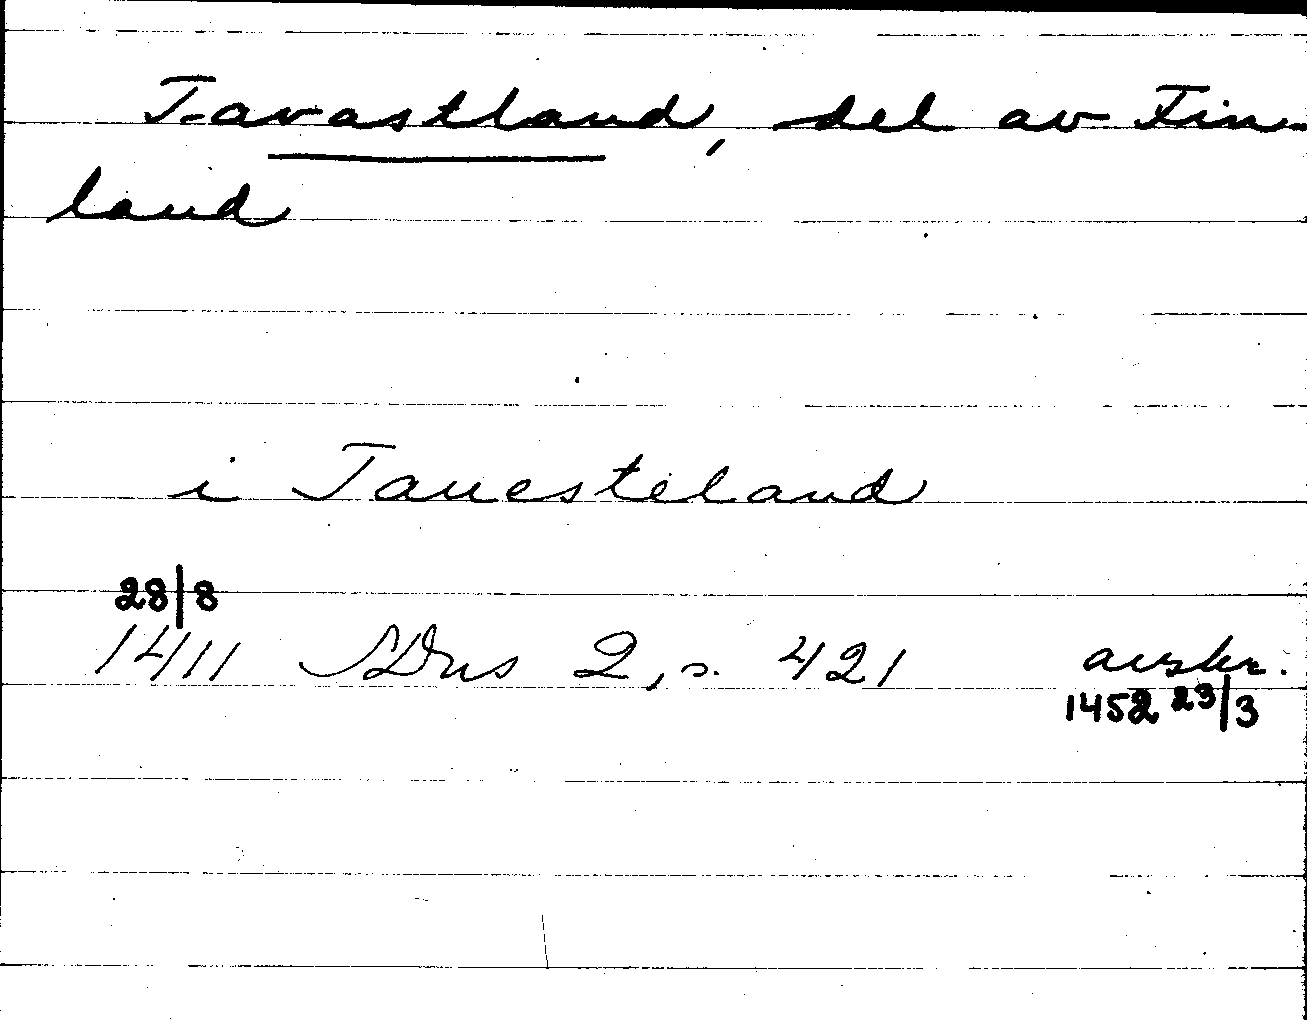 Tavastland, del av Fin-
land
i Tauesteland
28/8
1411 SDns 2, s. 421 avskr.
1452 23/3